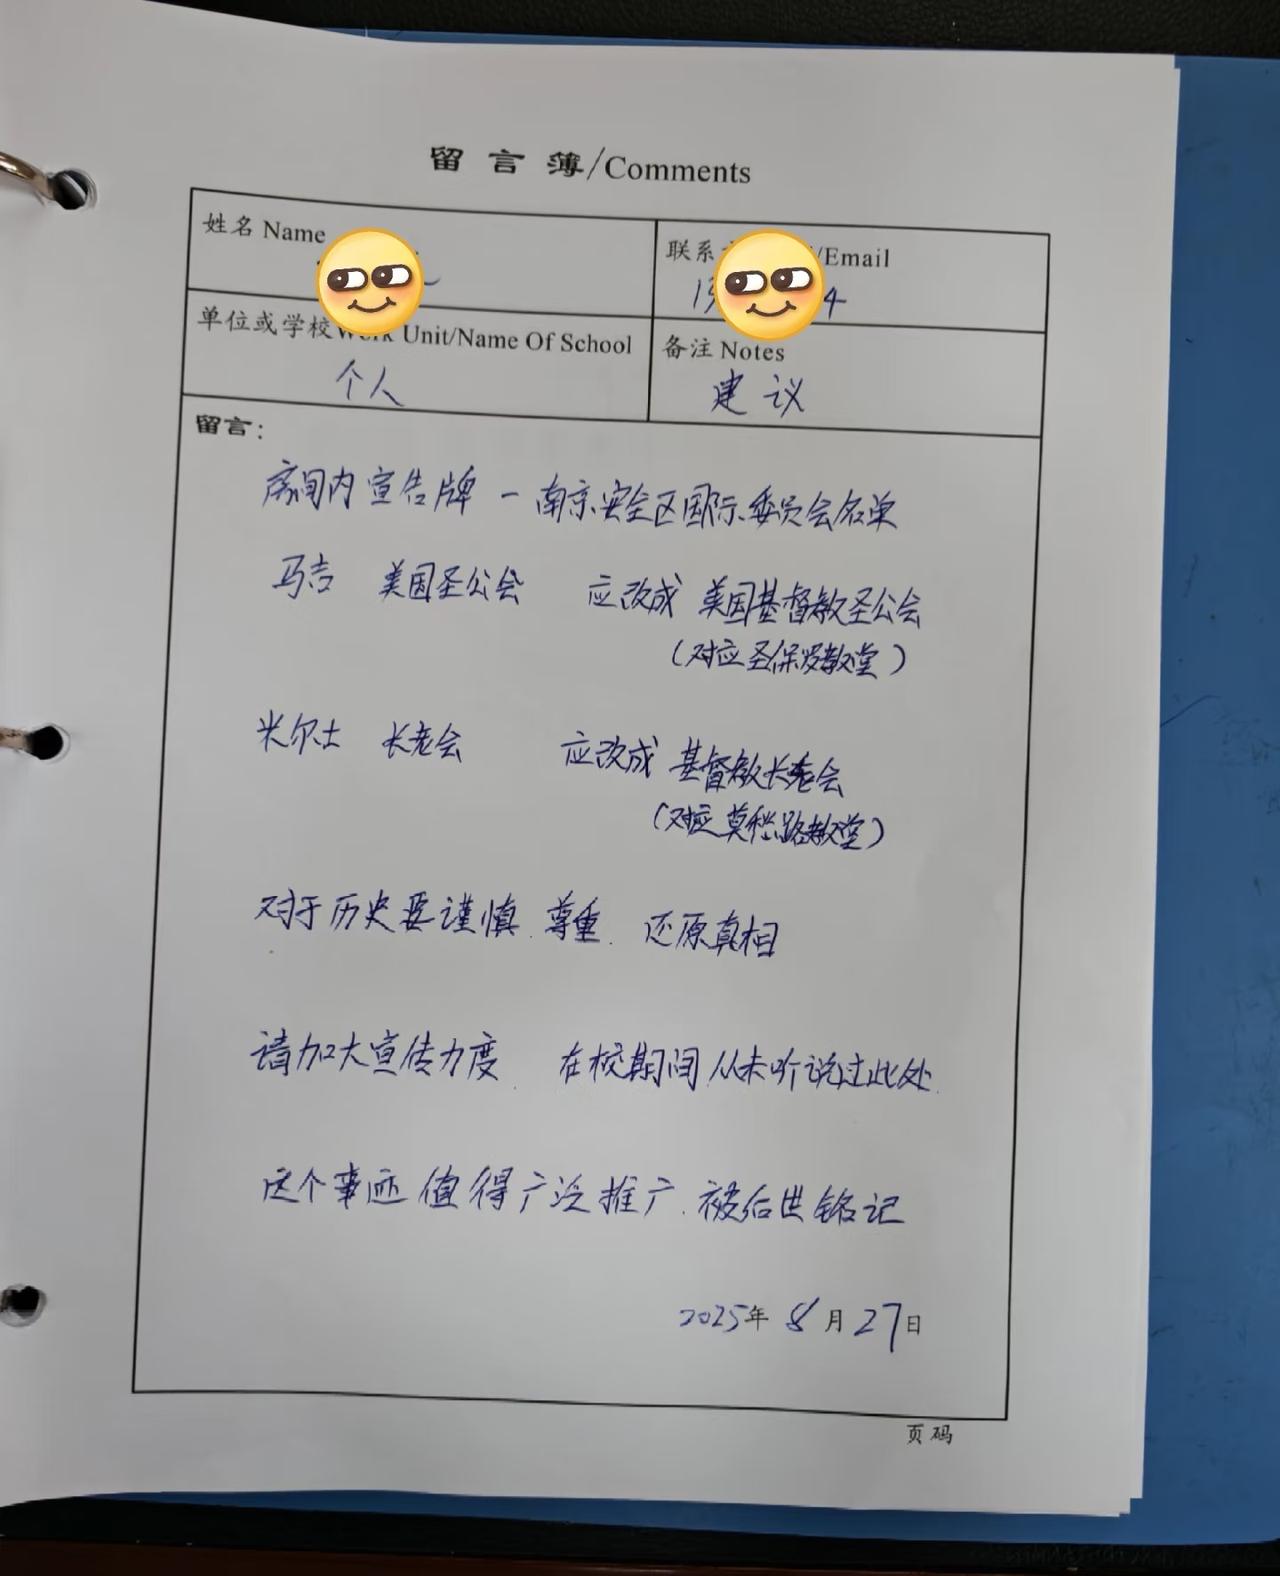 留言簿/Comments
姓名 Name
联系 /Email
4
单位或学校 Work Unit/Name Of School
个人
备注 Notes
建议
留言：
房间内宣告牌 — 南京安全区国际委员会名单
马吉 美国圣公会 应改成 美国基督教圣公会
（对应圣保罗教堂）
米尔士 长老会 应改成 基督教长老会
（对应莫愁路教堂）
对于历史要谨慎.尊重.还原真相
请加大宣传力度.在校期间从未听说过此处.
这个事迹值得广泛推广.被后世铭记
2025年8月27日
页码